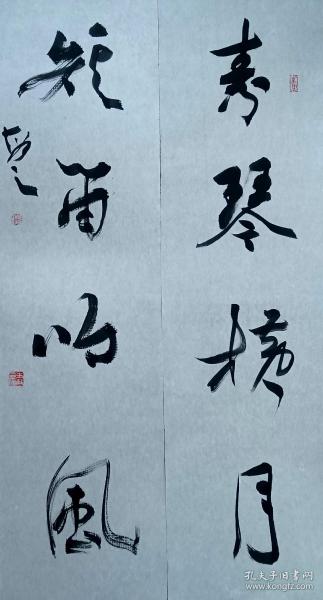 素琴横月
短笛吟風
孔夫子旧书网
www.kongfz.com